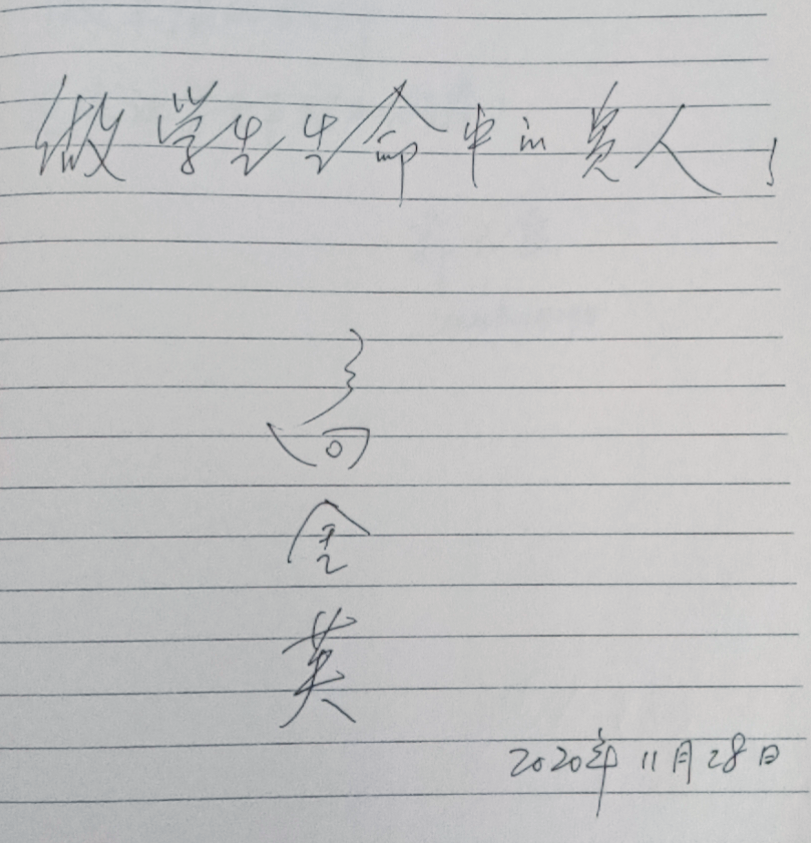 做学生生命中的贵人！
高金英
2020年11月28日